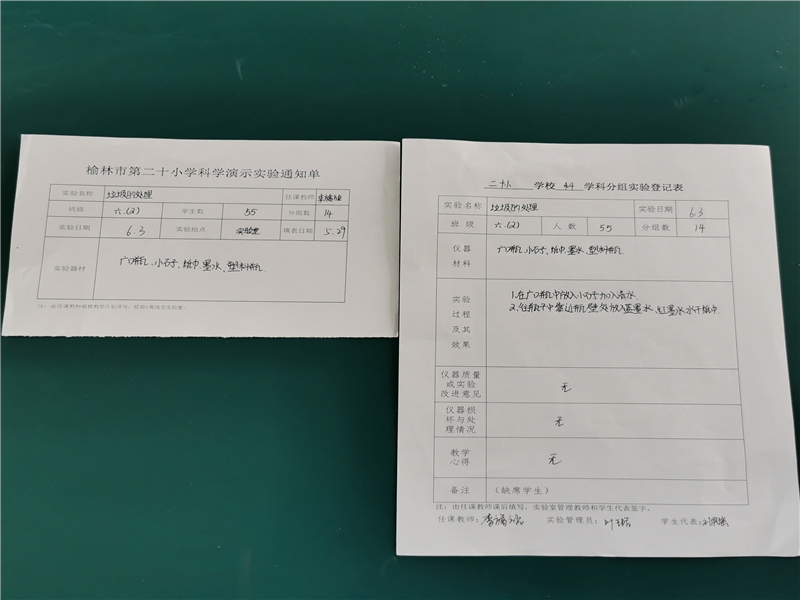 榆林市第二十小学科学演示实验通知单
实验名称 垃圾的处理 任课教师
班级 六.(2) 学生数 55 分组数 14
实验日期 6.3 实验地点 实验室 填表日期 5.29
实验器材 广口瓶、小石子、纸巾、墨水、塑料瓶
注：由任课教师根据教学计划填写，提前1周送至实验室。
二十小 学校 科 学科分组实验登记表
实验名称 垃圾的处理 实验日期 6.3
班级 六.(2) 人数 55 分组数 14
仪器
材料
广口瓶、小石子、纸巾、墨水、塑料瓶
实验
过程
及其
效果
1.在广口瓶中放入小石子加入清水.
2.在瓶子中靠近瓶壁处放入蓝墨水、红墨水水于纸巾.
仪器质量
或实验
改进意见
无
仪器损
坏与处
理情况
无
教学
心得
无
备注 (缺席学生)
注：由任课教师课后填写，实验室管理教师和学生代表签字。
任课教师： 实验管理员： 学生代表: